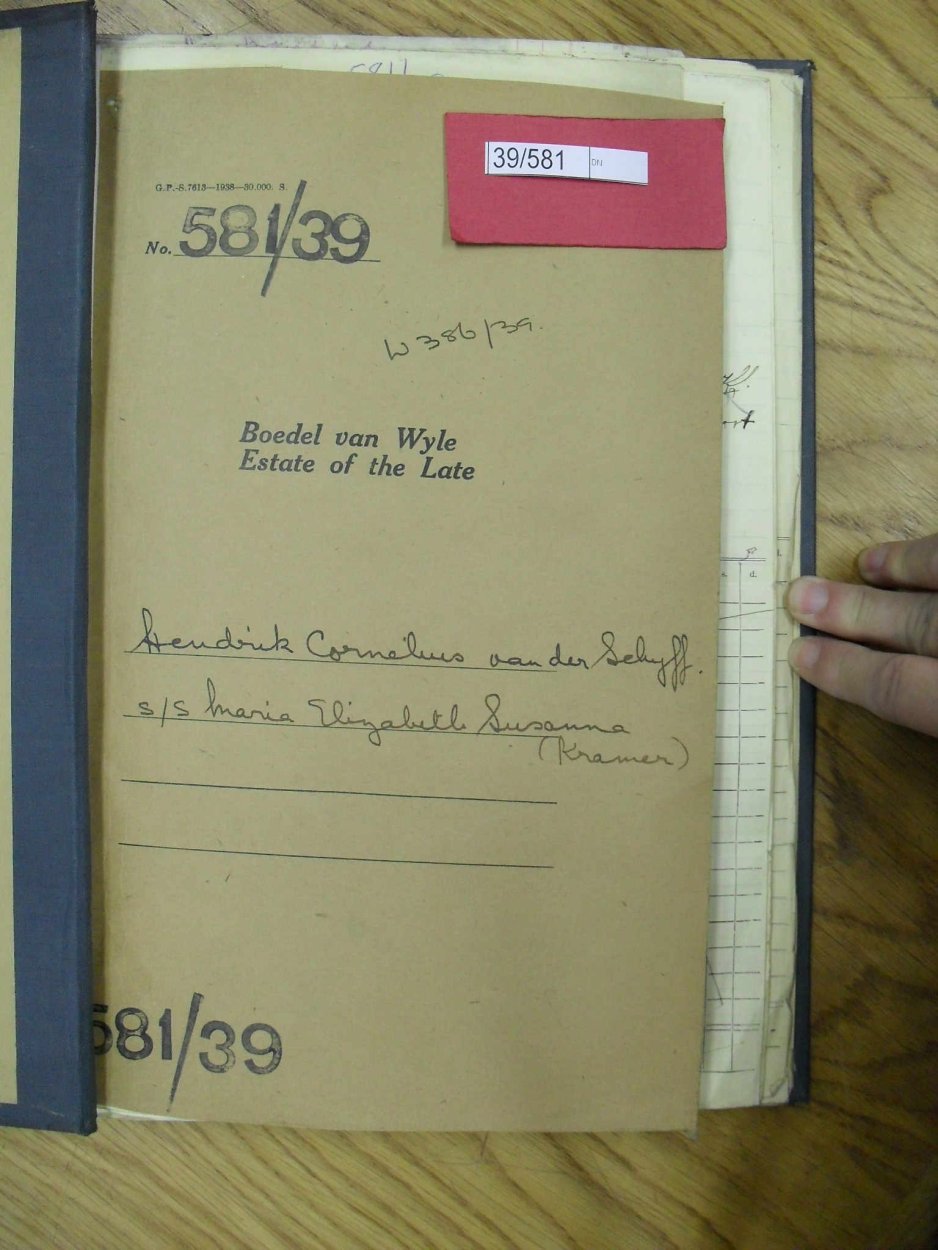 39/581 DN
G.P.-S.7613—1938—30.000. S.
No. 581/39
W 386/39.
Boedel van Wyle
Estate of the Late
Hendrik Cornelius van der Schyff.
s/s Maria Elizabeth Susanna
(Kramer)
581/39